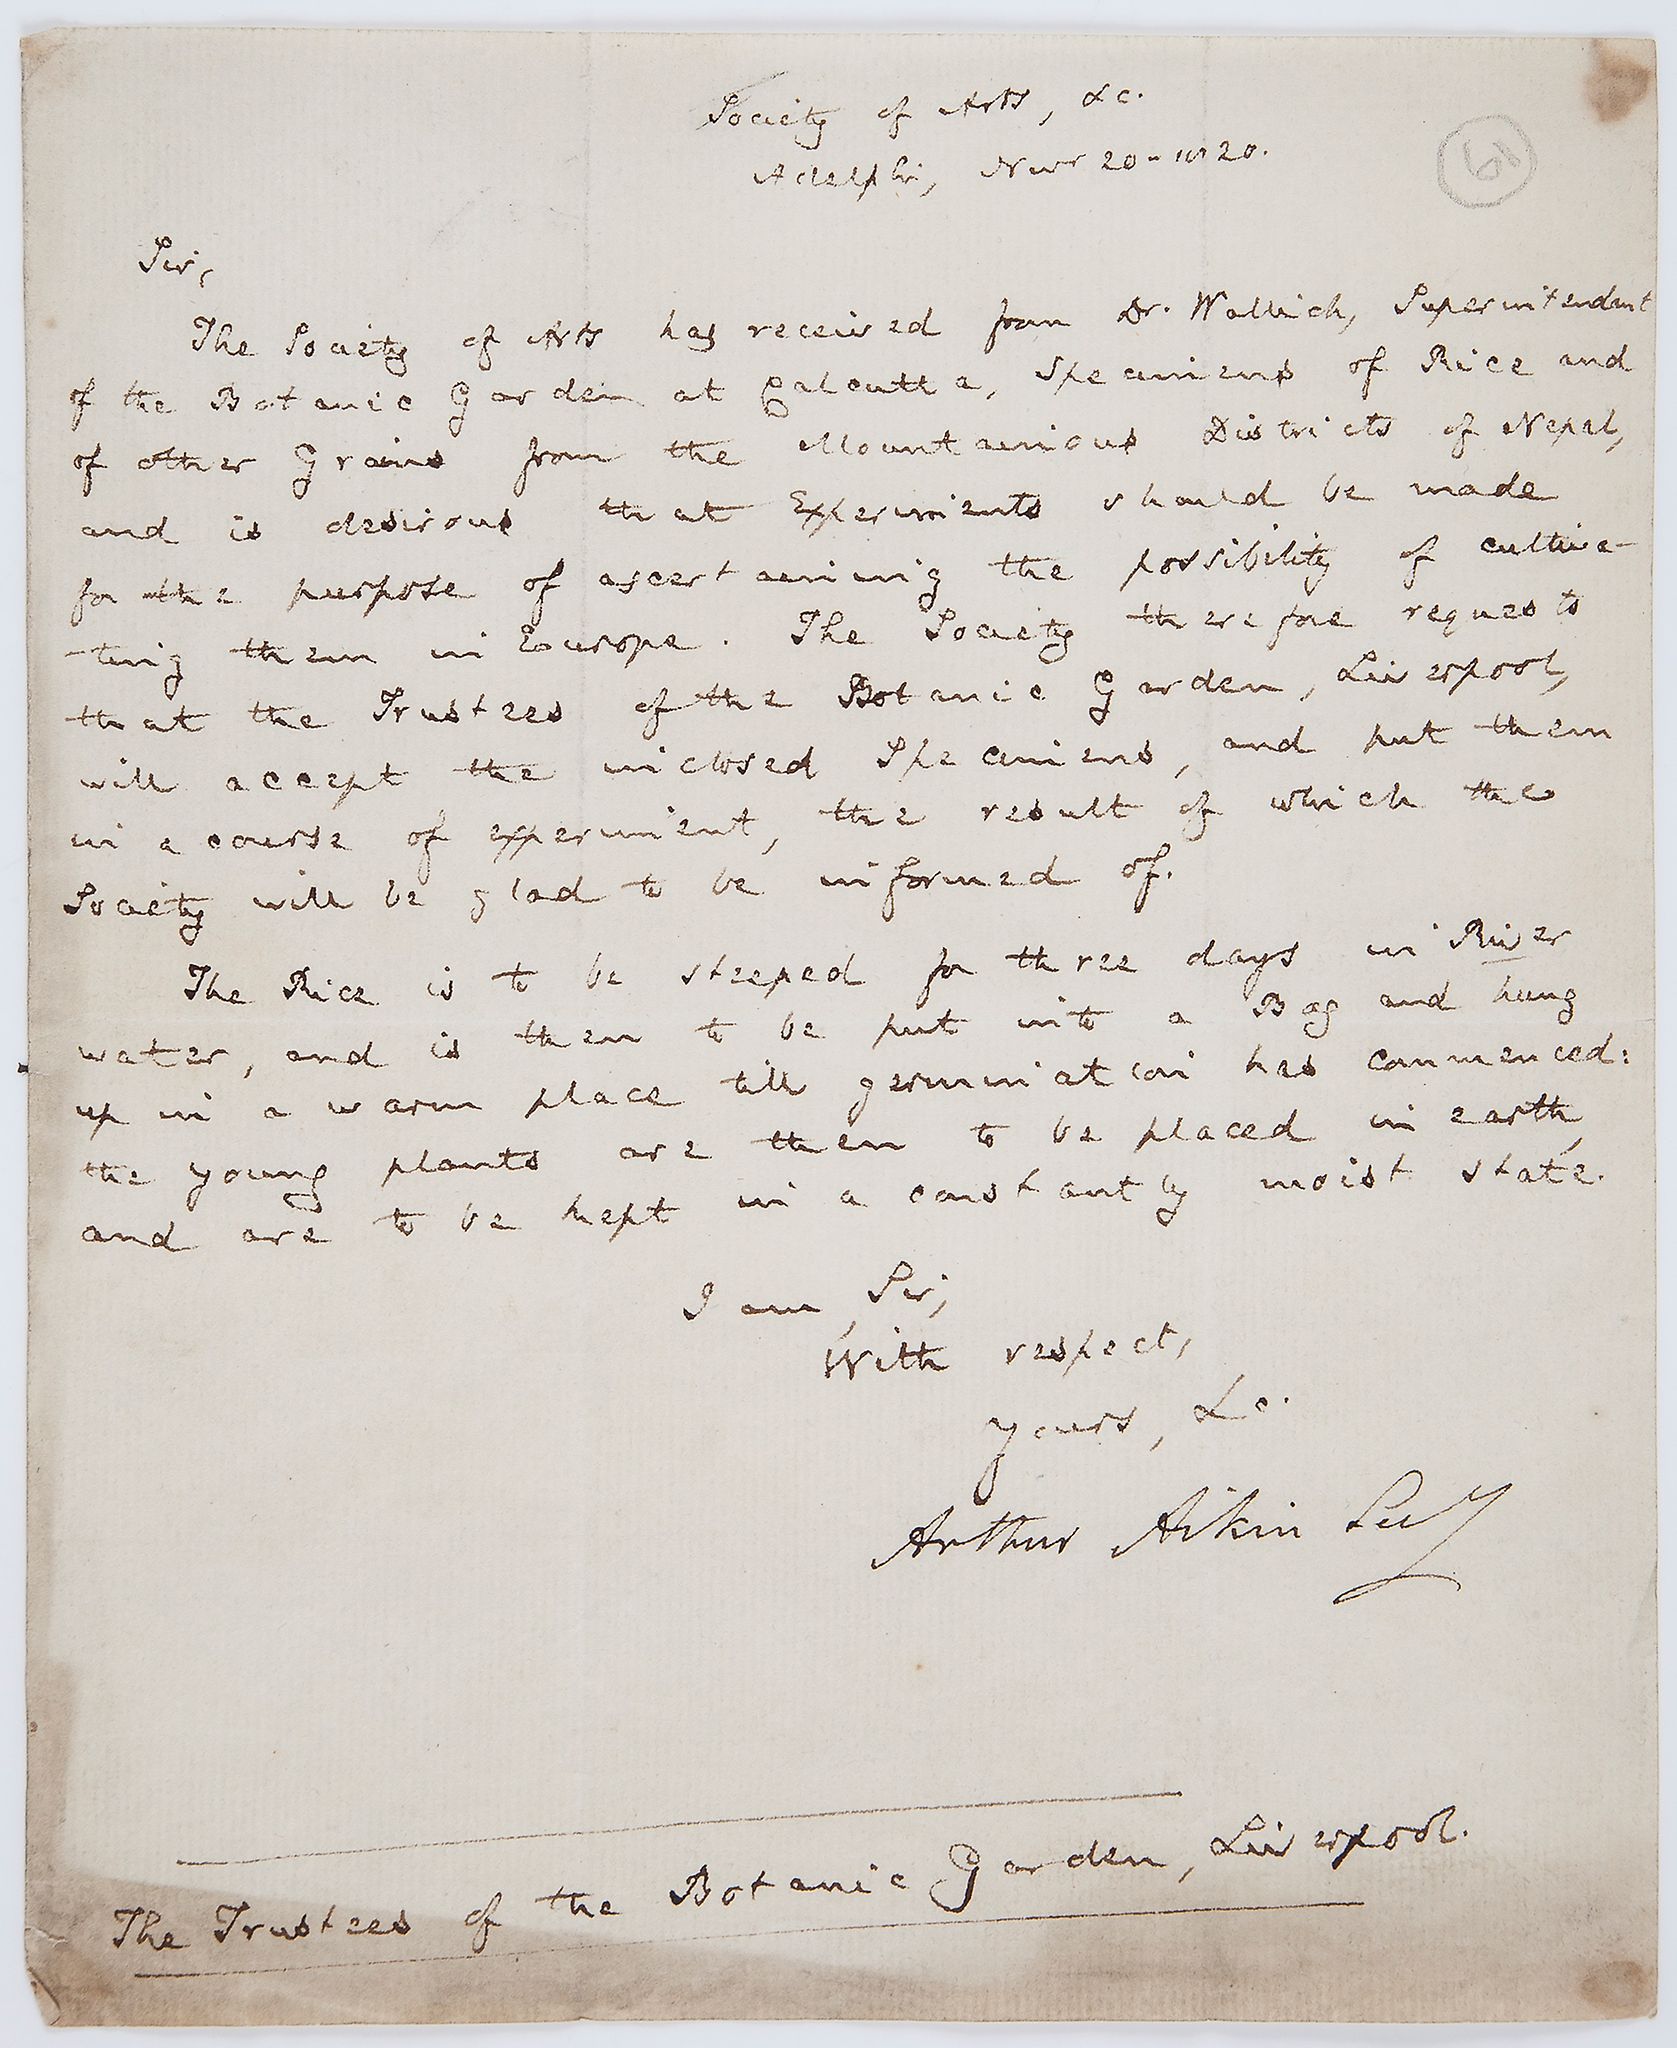 Society of Arts, &c.
Adelphi, Novr 20 - 1820.
61
Sir,
The Society of Arts has received from Dr. Wallich, Superintendant
of the Botanic Garden at Calcutta, Specimens of Rice and
of other Grains from the Mountainous Districts of Nepal,
and is desirous that Experiments should be made
for the purpose of ascertaining the possibility of cultiva-
-ting them in Europe. The Society therefore requests
that the Trustees of the Botanic Garden, Liverpool,
will accept the inclosed Specimens, and put them
in a course of experiment, the result of which the
Society will be glad to be informed of.
The Rice is to be steeped for three days in River
water, and is then to be put into a Bag and hung
up in a warm place till germination has commenced:
the young plants are then to be placed in earth,
and are to be kept in a constantly moist state.
I am, Sir,
With respect,
yours, &c.
Arthur Aikin Secy
The Trustees of the Botanic Garden, Liverpool.